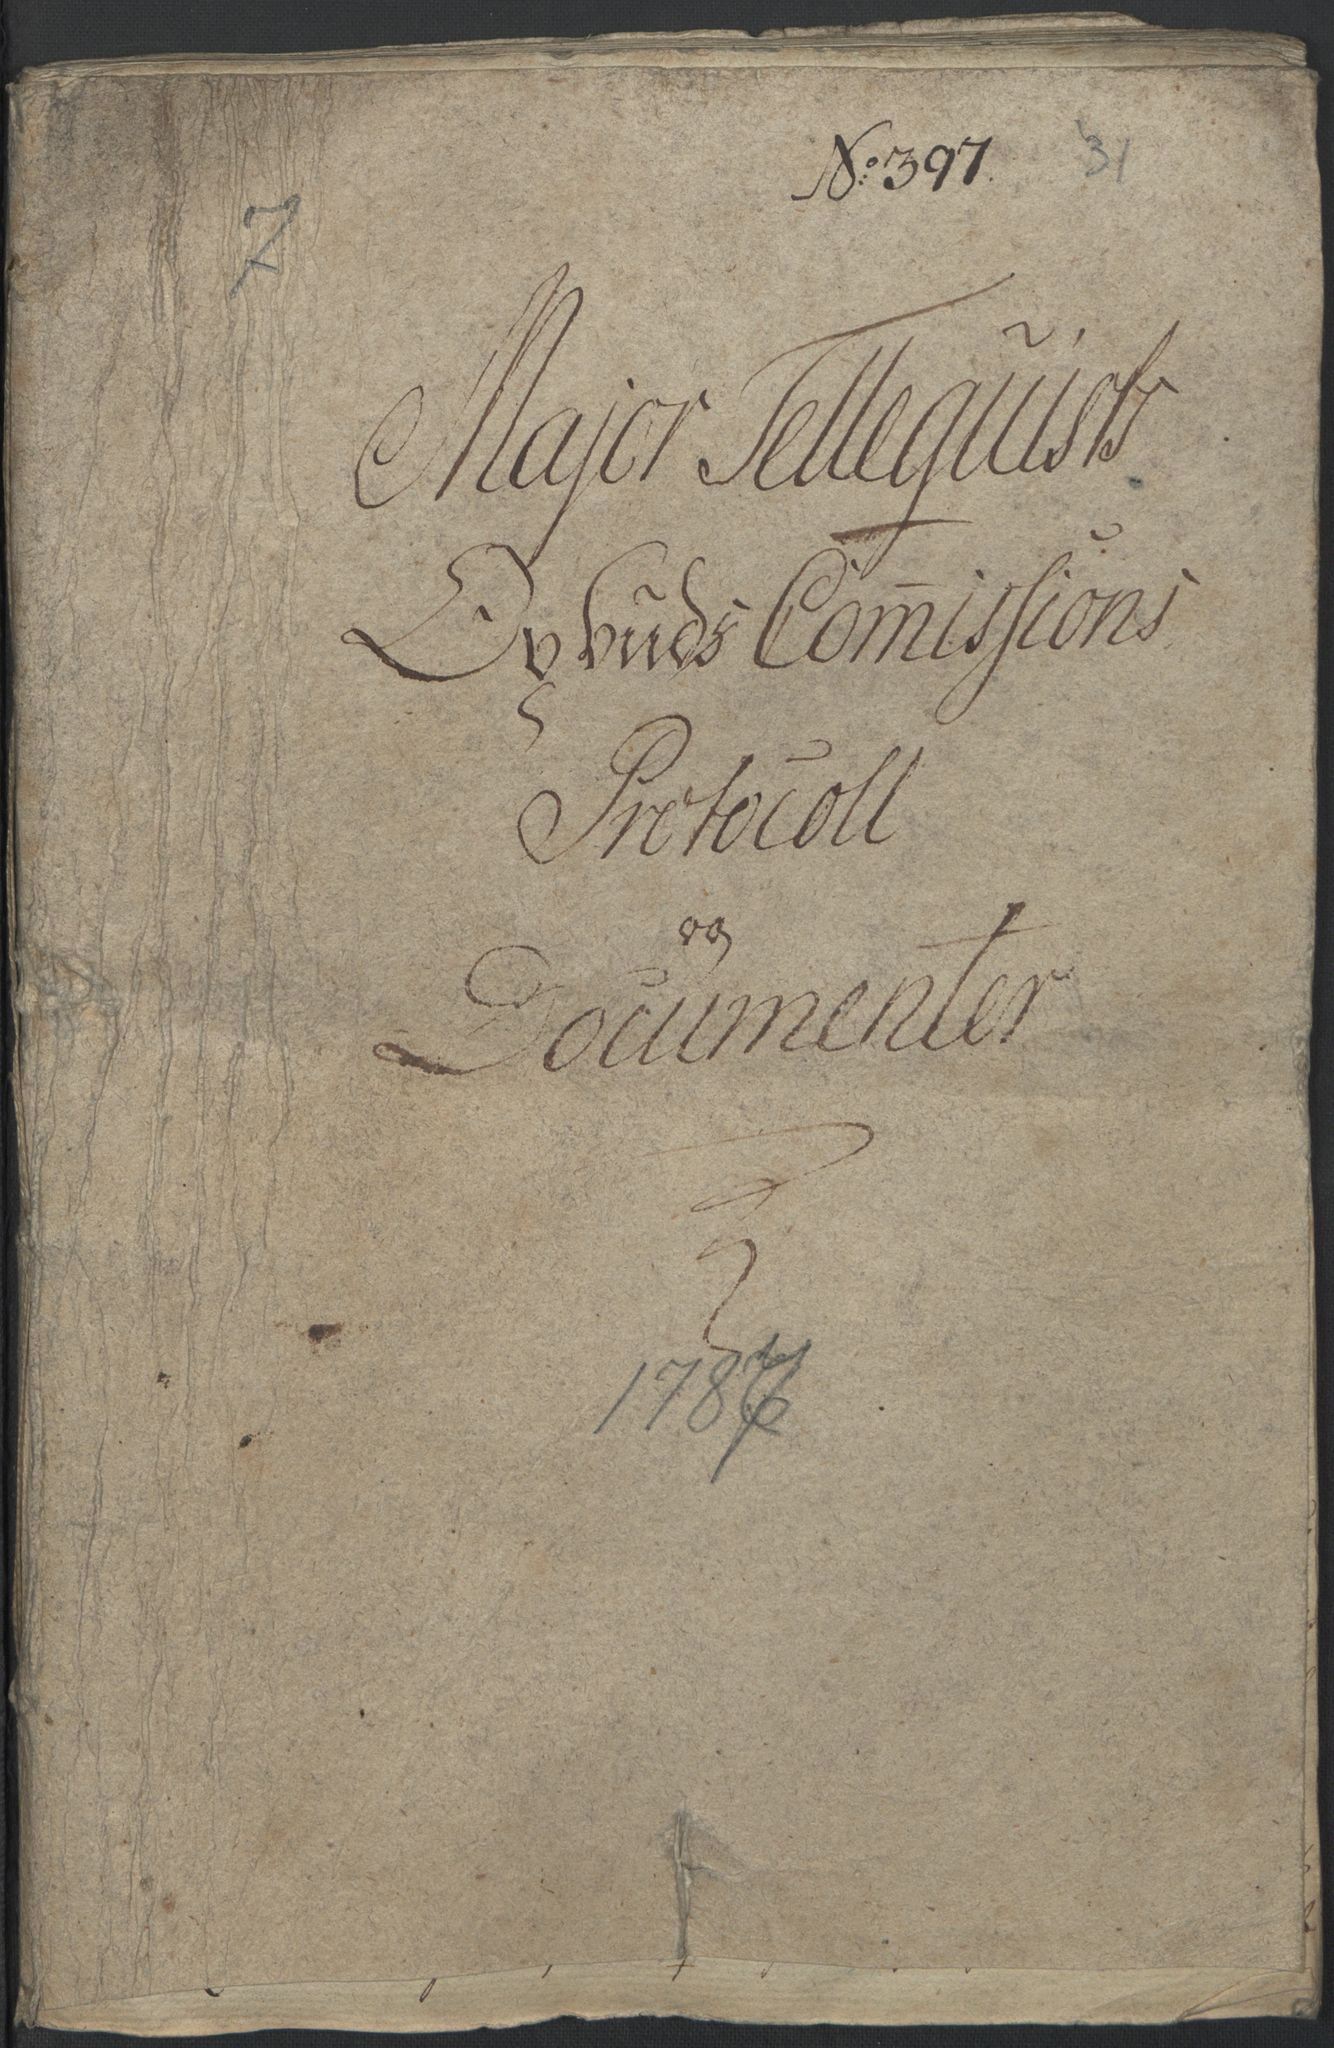 No: 397.
31
7
Major Tellequists
Opbuds Com̄issions
Protocoll
og
Documenter
178